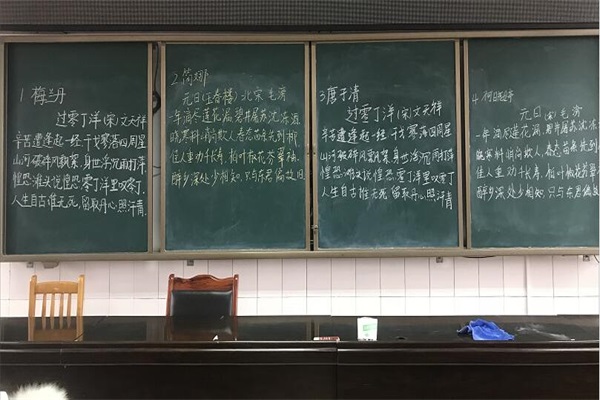 1 梅兰丹
过零丁洋(宋)文天祥
辛苦遭逢起一经 干戈寥落四周星
山河破碎风飘絮,身世浮沉雨打萍
惶恐滩头说惶恐 零丁洋里叹零丁
人生自古谁无死,留取丹心照汗青
2. 简娜
元日(玉春楼)北宋 毛滂
一年滴尽莲花漏 碧井屠苏沈冻酒
晓寒料峭尚欺人 春态苗条先到柳
佳人重劝千长寿,柏叶椒花芬翠袖
醉乡深处少相知,只与东君偏故旧
3 唐于清
过零丁洋(宋)文天祥
辛苦遭逢起一经 干戈寥落四周星
山河破碎风飘絮 身世浮沉雨打萍
惶恐滩头说惶恐 零丁洋里叹零丁
人生自古谁无死,留取丹心照汗青
4
元日(宋)毛滂
一年滴尽莲花漏,碧井屠苏沈冻
晓寒料峭尚欺人,春态苗条先到
佳人重劝千长寿,柏叶椒花芬翠
醉乡深处少相知,只与东君偏故